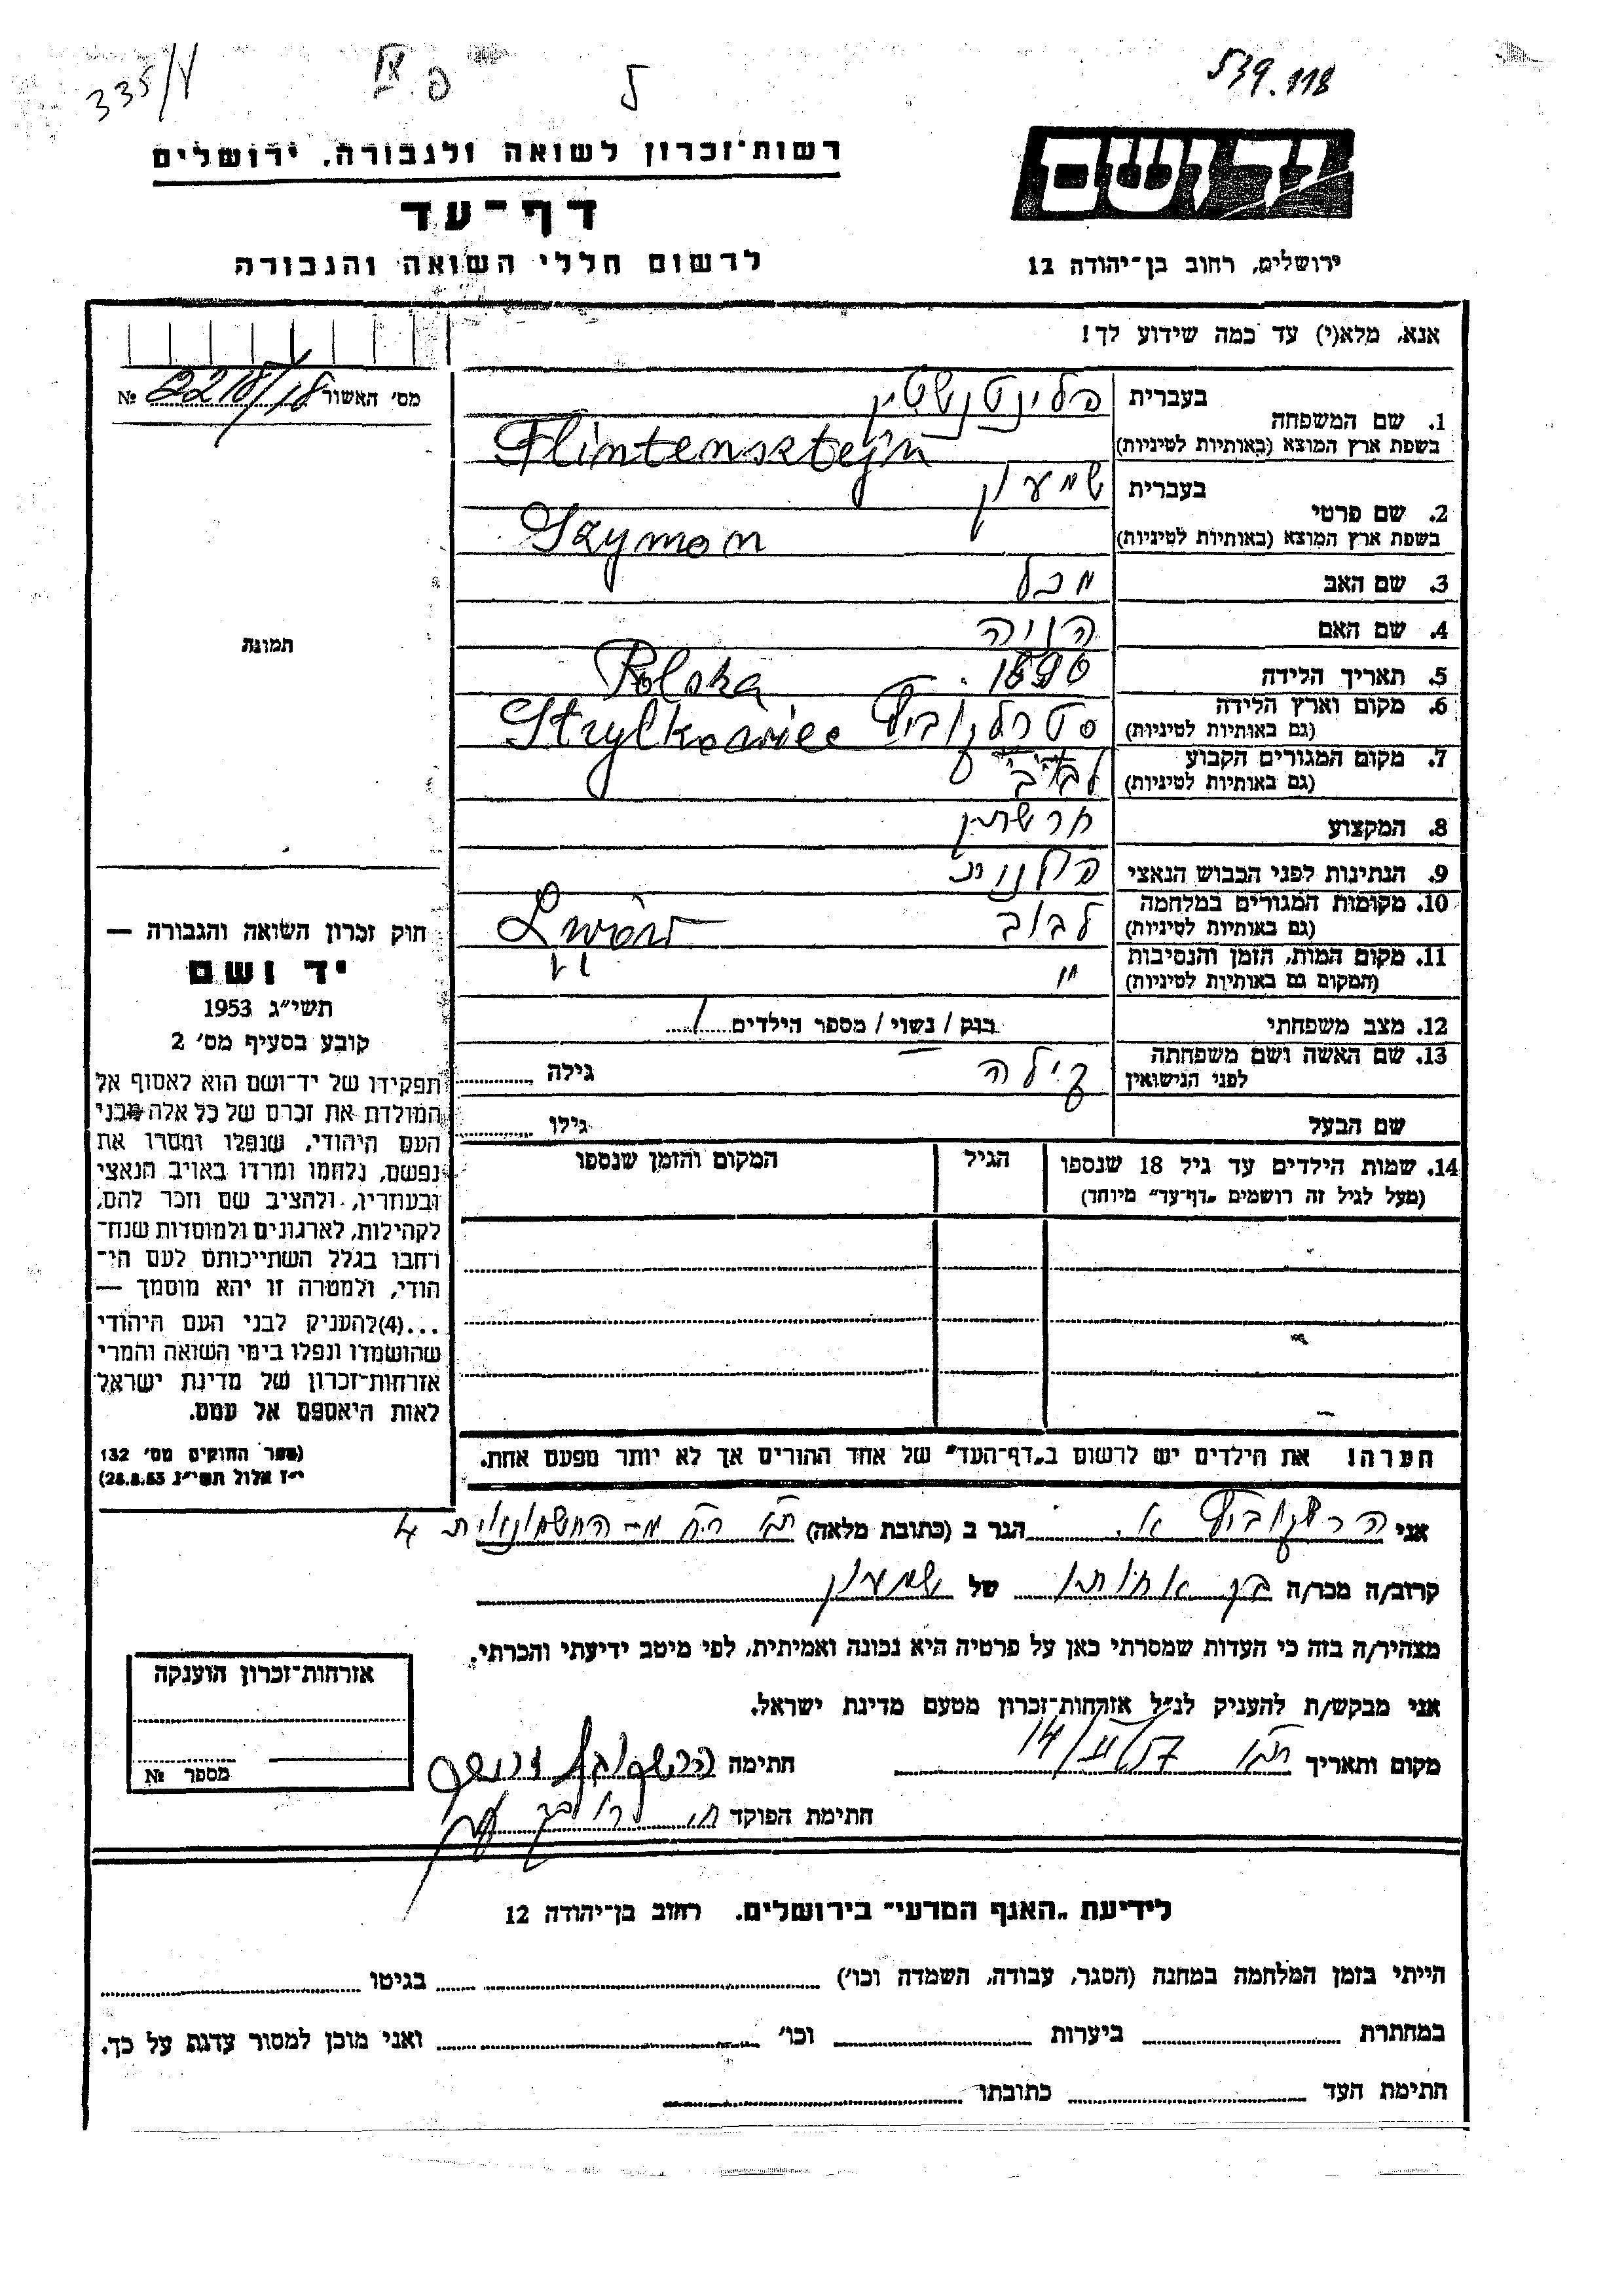 335/V
פ
ל
539.118
יד ושם
רשות־זכרון לשואה ולגבורה, ירושלים
דף־עד
לרשום חללי השואה והגבורה
ירושלים, רחוב בן־יהודה 12
אנא, מלא(י) עד כמה שידוע לך!
מס' האשור № 2218/18
1. שם המשפחה בעברית פלינטנשטין
בשפת ארץ המוצא (באותיות לטיניות) Flintensztejn
2. שם פרטי בעברית שמעון
בשפת ארץ המוצא (באותיות לטיניות) Szymon
3. שם האב מכל
4. שם האם הויה
5. תאריך הלידה 1890.
6. מקום וארץ הלידה Polska
(גם באותיות לטיניות) סטרלקוביץ Strylkowiec
7. מקום המגורים הקבוע
(גם באותיות לטיניות)
8. המקצוע חרשתן
9. הנתינות לפני הכבוש הנאצי פולנית
10. מקומות המגורים במלחמה
(גם באותיות לטיניות) לבוב Lwów
11. מקום המות, הזמן והנסיבות
(המקום גם באותיות לטיניות) " "
12. מצב משפחתי רווק / נשוי / מספר הילדים 1
13. שם האשה ושם משפחתה
לפני הנישואין צילה גילה
שם הבעל גילו
14. שמות הילדים עד גיל 18 שנספו
(מעל לגיל זה רושמים „דף־עד" מיוחד)
הגיל
המקום והזמן שנספו
הערה! את הילדים יש לרשום ב„דף־העד" של אחד ההורים אך לא יותר מפעם אחת.
תמונה
חוק זכרון השואה והגבורה —
יד ושם
תשי"ג 1953
קובע בסעיף מס' 2
תפקידו של יד־ושם הוא לאסוף אל
המולדת את זכרם של כל אלה מבני
העם היהודי, שנפלו ומסרו את
נפשם, נלחמו ומרדו באויב הנאצי
ובעוזריו, ולהציב שם וזכר להם,
לקהילות, לארגונים ולמוסדות שנח־
רחבו בגלל השתייכותם לעם הי־
הודי, ולמטרה זו יהא מוסמך —
...(4)להעניק לבני העם היהודי
שהושמדו ונפלו בימי השואה והמרי
אזרחות־זכרון של מדינת ישראל
לאות היאספם אל עמם.
(ספר החוקים מס' 132
י"ז אלול תשי"ג 28.8.53)
אני הרשקוביץ א. הגר ב (כתובת מלאה)
קרוב/ה מכר/ה בן אחותו של שמעון
מצהיר/ה בזה כי העדות שמסרתי כאן על פרטיה היא נכונה ואמיתית, לפי מיטב ידיעתי והכרתי.
אני מבקש/ת להעניק לנ"ל אזרחות־זכרון מטעם מדינת ישראל.
מקום ותאריך 14/II/57 חתימה
חתימת הפוקד
אזרחות־זכרון הוענקה
מספר №
לידיעת „האגף המדעי" בירושלים. רחוב בן־יהודה 12
הייתי בזמן המלחמה במחנה (הסגר, עבודה, השמדה וכו') בגיטו
במחתרת ביערות וכו' ואני מוכן למסור עדות על כך.
חתימת העד כתובתו